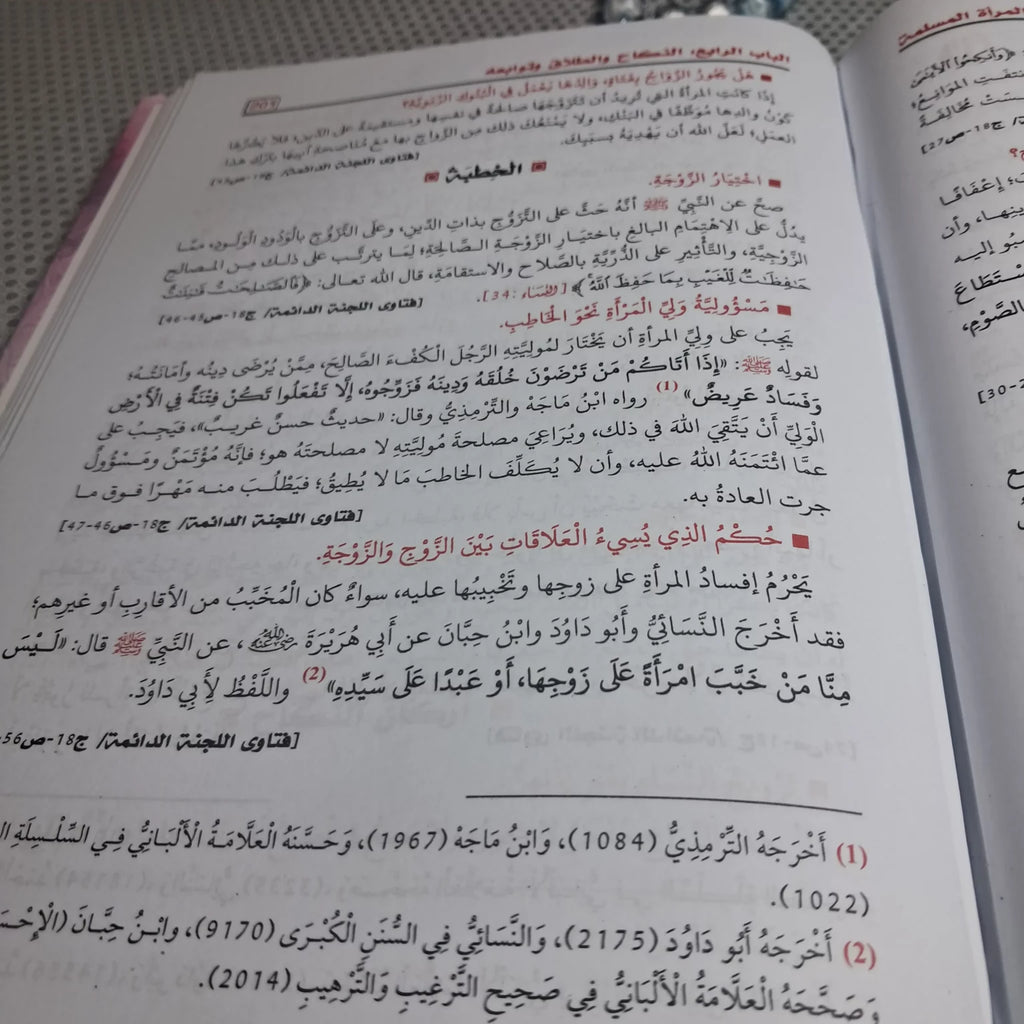 الباب الرابع: النكاح والطلاق وتوابعه
■ هَلْ يَجُوزُ الزَّوَاجُ بِفَتَاةٍ، وَالِدُهَا يَعْمَلُ فِي الْبُنُوكِ الرِّبَوِيَّةِ؟
إذَا كانَتِ المرأةُ التي تُرِيدُ أن تَتَزَوَّجَهَا صالحةً في نفسِها ومستقيمةً على الدِّينِ، فلا يَضُرُّهَا
كَوْنُ والدِها مُوَظَّفًا في البَنْكِ، ولا يَمْنَعُكَ ذلك مِن الزَّواجِ بها مع مُنَاصحةِ أبيها بتَرْكِ هذا
العملِ؛ لعَلَّ اللهَ أن يَهْدِيَهُ بسببِكَ.
[فتاوى اللجنة الدائمة/ ج18-ص
الخطبة
■ اخْتِيَارُ الزَّوْجَةِ.
صحَّ عن النَّبِيِّ ﷺ أنَّهُ حَثَّ على التَّزَوُّجِ بذاتِ الدِّينِ، وعلَى التَّزَوُّجِ بالْوَدُودِ الْوَلُودِ، ممَّا
يدُلُّ على الاهْتِمَامِ البالغِ باختيارِ الزَّوْجَةِ الصَّالحةِ؛ لِمَا يترتَّب على ذلك مِن المصالحِ
الزَّوْجِيَّةِ، والتَّأْثِيرِ على الذُّرِّيَّةِ بالصَّلاحِ والاستقامةِ، قال الله تعالى: ﴿فَالصَّٰلِحَٰتُ قَٰنِتَٰتٌ
حَٰفِظَٰتٌ لِّلْغَيْبِ بِمَا حَفِظَ ٱللَّهُ﴾ [النساء: 34].
[فتاوى اللجنة الدائمة/ ج18-ص45-46]
■ مَسْؤُولِيَّةُ وَلِيِّ الْمَرْأَةِ نَحْوَ الْخَاطِبِ.
يَجِبُ على وليِّ المرأةِ أن يَخْتَارَ لمُولِيَّتِهِ الرَّجُلَ الْكُفْءَ الصَّالِحَ، مِمَّنْ يُرْضَى دِينُه وأمَانَتُهُ؛
لقولِه ﷺ: «إِذَا أَتَاكُمْ مَنْ تَرْضَوْنَ خُلُقَهُ وَدِينَهُ فَزَوِّجُوهُ، إِلَّا تَفْعَلُوا تَكُنْ فِتْنَةٌ فِي الْأَرْضِ
وَفَسَادٌ عَرِيضٌ» (1) رواه ابْنُ مَاجَهْ والتِّرْمِذِيُّ وقال: «حديثٌ حسنٌ غريبٌ»، فيَجِبُ على
الْوَلِيِّ أَنْ يَتَّقِيَ اللهَ في ذلك، ويُرَاعِيَ مصلحةَ مُولِيَّتِهِ لا مصلحتَهُ هو؛ فإنَّهُ مُؤْتَمَنٌ ومَسْؤُولٌ
عمَّا ائْتَمَنَهُ اللهُ عليه، وأن لا يُكَلِّفَ الخاطبَ مَا لا يُطِيقُ؛ فيَطْلُبَ منه مَهْرًا فوق ما
جرت العادةُ به.
[فتاوى اللجنة الدائمة/ ج18-ص46-47]
■ حُكْمُ الذِي يُسِيءُ الْعَلَاقَاتِ بَيْنَ الزَّوْجِ وَالزَّوْجَةِ.
يَحْرُمُ إفسادُ المرأةِ على زوجِها وتَخْبِيبُها عليه، سواءٌ كان الْمُخَبِّبُ من الأقاربِ أو غيرِهم؛
فقد أَخْرَجَ النَّسَائِيُّ وأَبُو دَاوُدَ وابْنُ حِبَّانَ عن أَبِي هُرَيْرَةَ رضي الله عنه، عن النَّبِيِّ ﷺ قال: «لَيْسَ
مِنَّا مَنْ خَبَّبَ امْرَأَةً عَلَى زَوْجِهَا، أَوْ عَبْدًا عَلَى سَيِّدِهِ» (2) واللَّفْظُ لِأَبِي دَاوُدَ.
[فتاوى اللجنة الدائمة/ ج18-ص56
(1) أَخْرَجَهُ التِّرْمِذِيُّ (1084)، وَابْنُ مَاجَهْ (1967)، وَحَسَّنَهُ الْعَلَّامَةُ الْأَلْبَانِيُّ فِي السِّلْسِلَةِ
(1022).
(2) أَخْرَجَهُ أَبُو دَاوُدَ (2175)، وَالنَّسَائِيُّ فِي السُّنَنِ الْكُبْرَى (9170)، وابْنُ حِبَّانَ
وَصَحَّحَهُ الْعَلَّامَةُ الْأَلْبَانِيُّ فِي صَحِيحِ التَّرْغِيبِ وَالتَّرْهِيبِ (2014).
المرأة المسلمة
ج18-ص27]
إعْفَافًا
وأن
إليه
الصَّوْمِ،